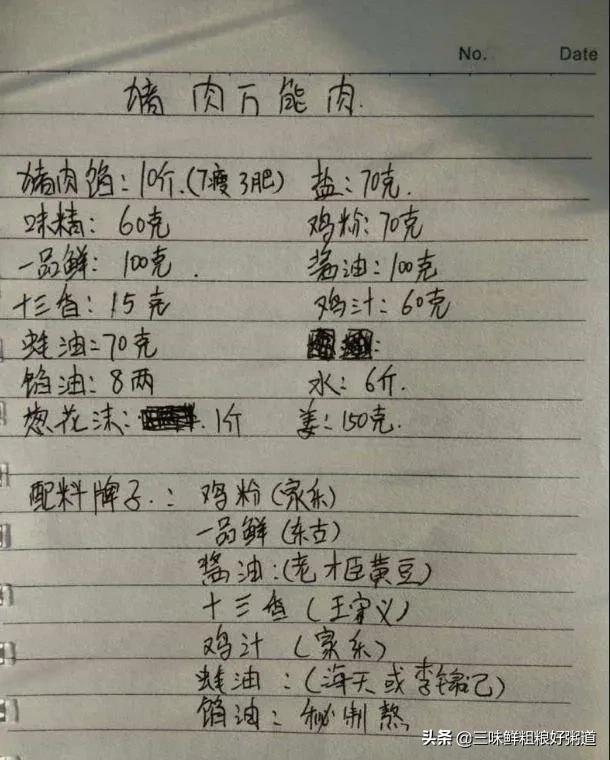 No. Date
猪肉万能肉.
猪肉馅:10斤.(7瘦3肥) 盐:70克.
味精:60克 鸡粉:70克
一品鲜:100克. 酱油:100克
十三香:15克 鸡汁:60克
蚝油:70克
馅油:8两 水:6斤.
葱花沫: 1斤 姜:150克.
配料牌子.: 鸡粉(家乐)
一品鲜(东古)
酱油:(老才臣黄豆)
十三香(王守义)
鸡汁(家乐)
蚝油:(海天或李锦记)
馅油:秘制熬
头条 @三味鲜粗粮好粥道